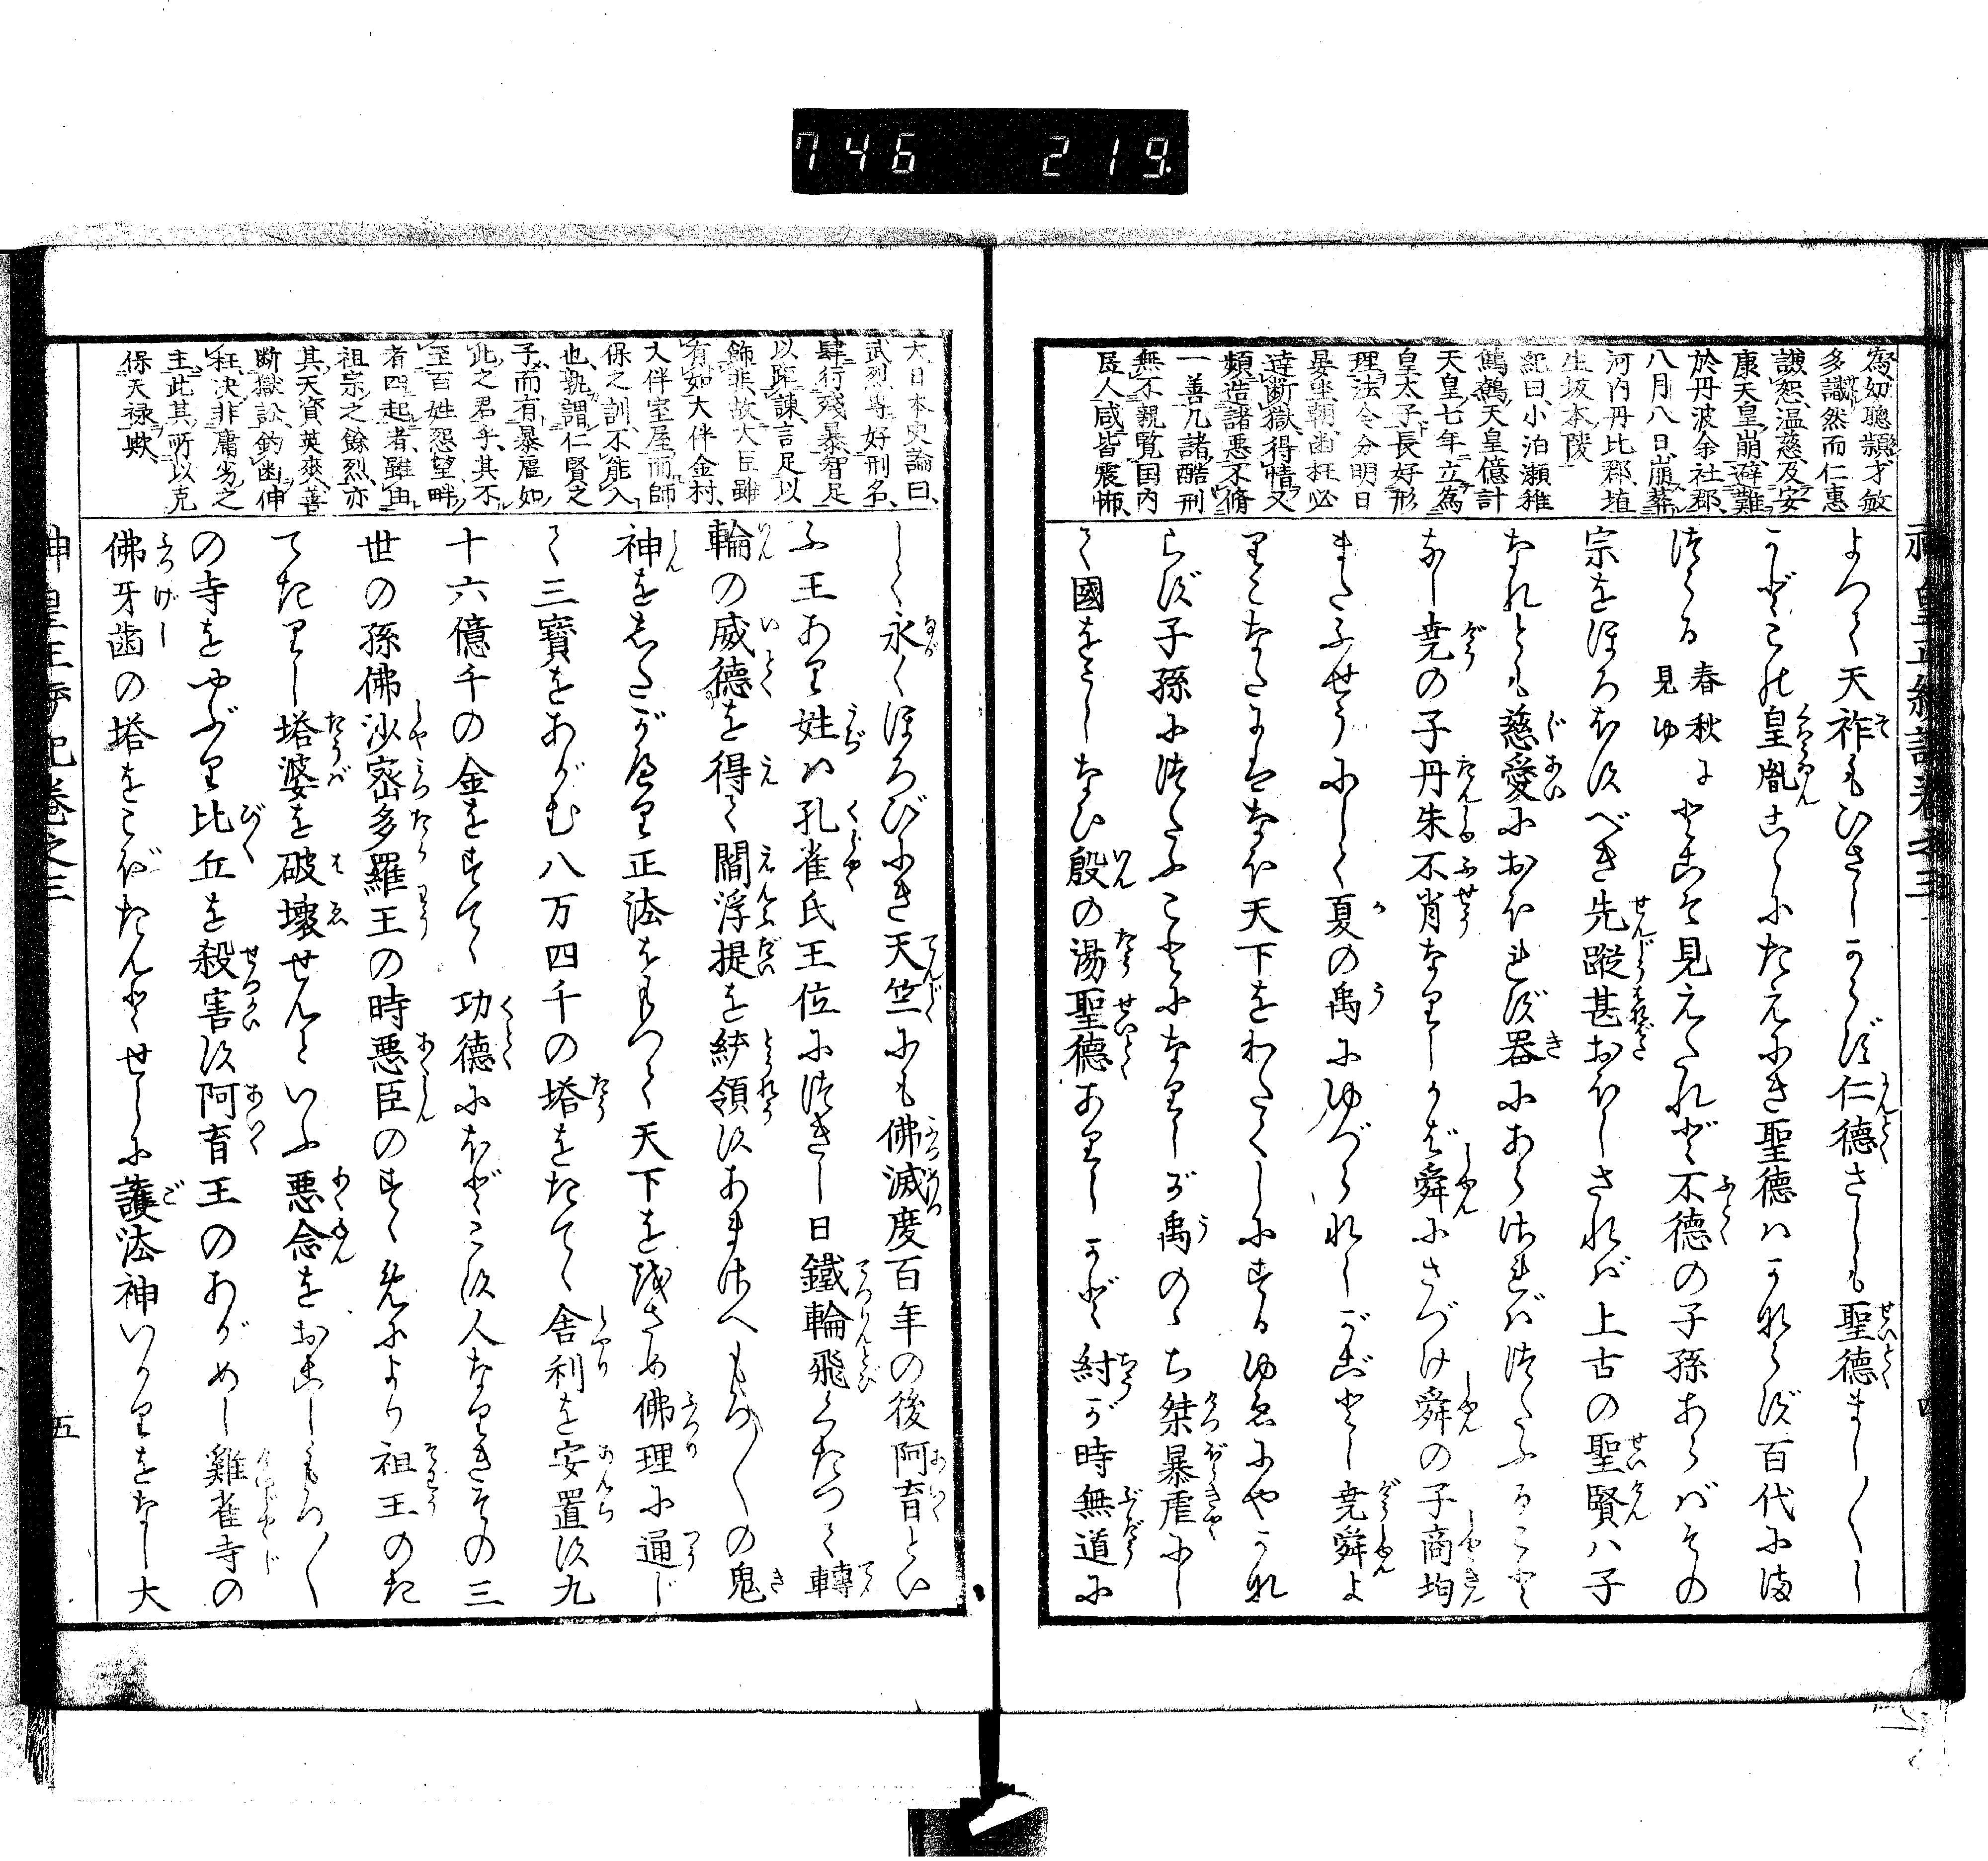 746 219.
神皇正統記巻之三
四
為幼聰頴才敏
多識然而仁恵
謙恕温慈及安
康天皇崩辟難
於丹波余社郡
八月八日崩葬
河内丹比郡埴
生坂本陵
紀曰小泊瀬稚
鷦鷯天皇億計
天皇七年立為
皇太子長好形
理法令分明日
晏坐朝幽枉必
達断獄得情又
頻造諸悪不脩
一善凡諸酷刑
無不親覧国内
居人咸皆震怖
よつて天祚もひさしからず仁徳さしも聖徳まし〳〵し
かどこの皇胤こゝにたえにき聖徳はかならず百代にま
つらる
春秋に
見ゆ
とこそ見えたれど不徳の子孫あらばその
宗をほろぼすべき先蹤甚おほしされば上古の聖賢ハ子
なれども慈愛におぼれず器にあらざればつたふること
なし堯の子丹朱不肖なりしかば舜にさづけ舜の子商均
またふせうにして夏の禹にゆづられしがごとし堯舜よ
りこなたにはなほ天下をわたくしにするゆゑにやかな
らず子孫につたふことになりしが禹のゝち桀暴虐にし
て國をうしなひ殷の湯聖徳ありしかど紂が時無道に
大日本史論曰
武烈専好刑名
肆行残暴智足
以距諫言足以
飾非故大臣雖
有如大伴金村
大伴室屋而師
保之訓不能入
也孰謂仁賢之
子而有暴虐如
此之君乎其不
至百姓怨望畔
者四起者雖由
祖宗之餘烈亦
其天資英爽善
断獄訟釣幽伸
枉决非庸劣之
主此其所以克
保天禄歟
して永くほろびにき天竺にも佛滅度百年の後阿育とい
ふ王あり姓ハ孔雀氏王位につきし日鐵輪飛くだつて轉
輪の威徳を得て閻浮提を統領すあまさへもろ〳〵の鬼
神をしたがへり正法をもつて天下を越さめ佛理に通じ
て三寶をあがむ八万四千の塔をたてゝ舎利を安置す九
十六億千の金をすてゝ功徳にほどこす人なりきその三
世の孫佛沙宻多羅王の時悪臣のすゝめにより祖王のた
てたりし塔婆を破壊せんといふ悪念をおこしもろ〳〵
の寺をやぶり比丘を殺害す阿育王のあがめし雞雀寺の
佛牙歯の塔をこぼたんとせしに護法神いかりをなし大
神皇正統記巻之三
五